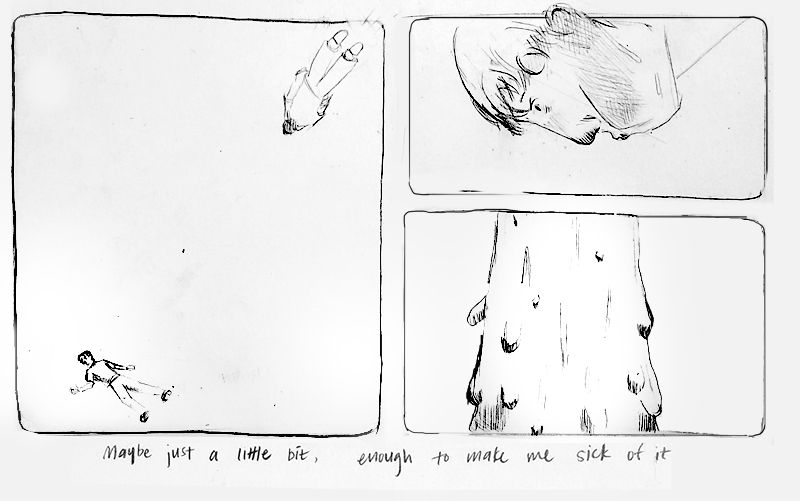 Maybe just a little bit, enough to make me sick of it